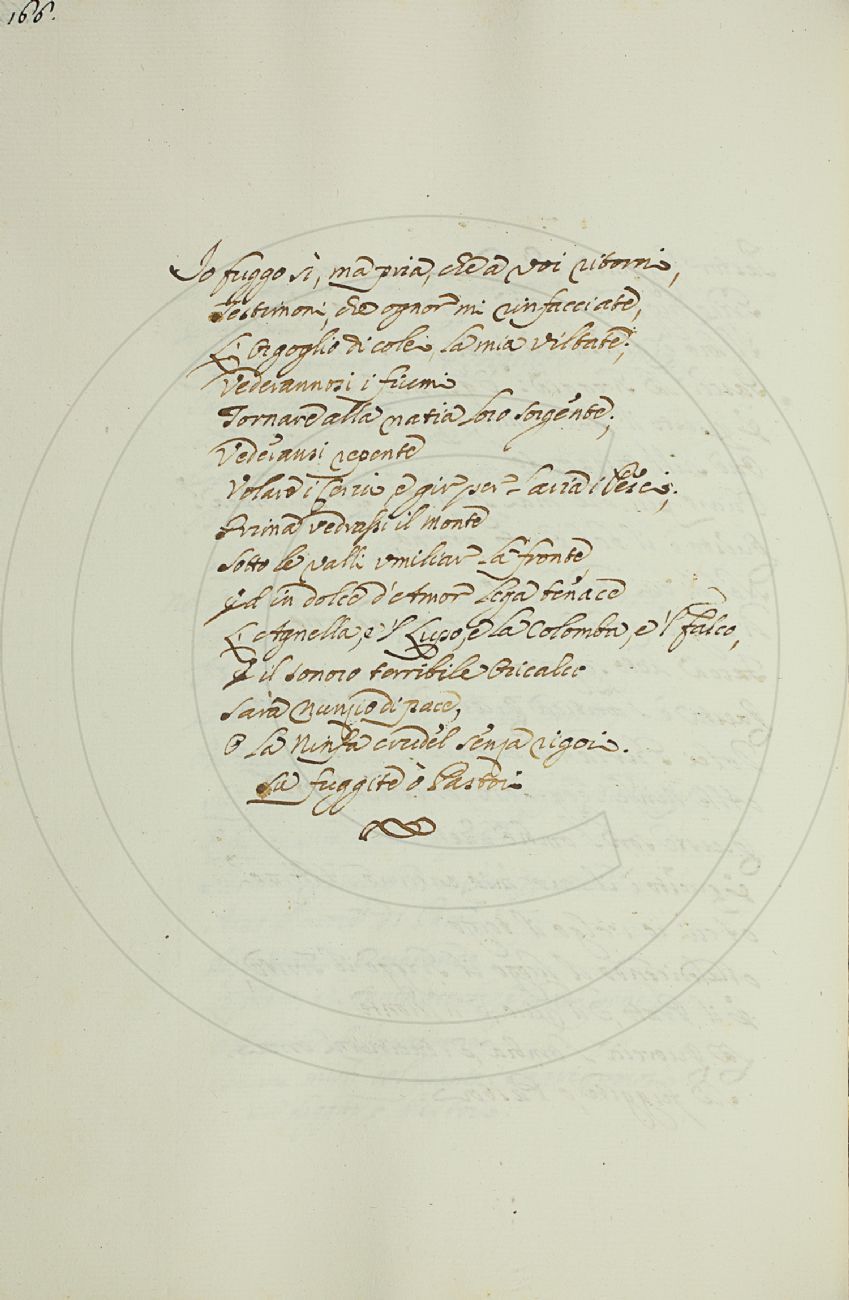 166.
Io fuggo sì, ma pria, che a voi ritorni,
Testimoni, che ognor mi rinfacciate,
L'Orgoglio di colei, la mia viltate;
Vederannosi i fiumi
Tornare alla natia loro sorgente;
Vederansi repente
Volare i Cervi e gir per l'aria i Pesci;
Prima vedrassi il monte
Sotto le valli umiliar la fronte,
Ed in dolce d'Amor lega tenace
L'Agnella, e 'l Lupo, e la Colomba, e 'l falco,
E il sonoro terribile Oricalco
Sarà Nunzio di pace,
O la Ninfa crudel senza rigori.
Su fuggite ò Pastori